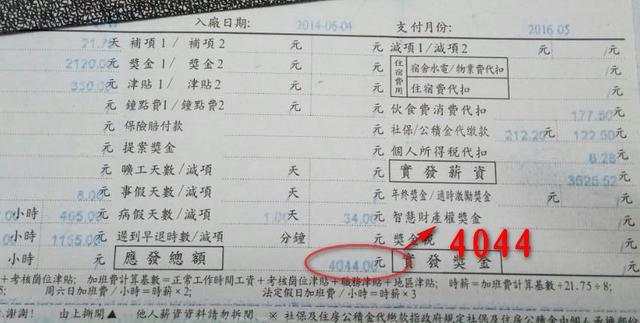 入廠日期: 2014-06-04 支付月份: 2016-05
21.75 天 補項1/ 補項2 元 元 減項1/減項2 元/ 元
2120.00 元 獎金1/ 獎金2 元 元 住宿費用 宿舍水電/物業費代扣
350.00 元 津貼1/ 津貼2 元 元 住宿費代扣
元 鐘點費1/鐘點費2 元 元 伙食費消費代扣 177.50 元
元 保險賠付款 元 社保/公積金代繳款 212.20 元/ 122.50 元
元 提案獎金 元 個人所得稅代扣 6.28 元
元 曠工天數/減項 天 元 實發薪資 3525.52 元
8.00 元 事假天數/減項 天 元 年終獎金/適時激勵獎金
小時 465.00 元 病假天數/減項 1.00 天 34.00 元 智慧財產權獎金
小時 1155.00 元 遲到早退時數/減項 分鐘 元 獎金 4044
小時 元 應發總額 4044.00 元 實發獎金
+考核崗位津貼; 加班費計算基數=正常工作時間工資+考核崗位津貼+職務津貼+地區津貼; 時薪=加班費計算基數÷21.75÷8;
周六日加班費/小時=時薪×2; 法定假日加班費/小時=時薪×3
謝謝! 由上撕開▲ 他人薪資資料請勿拆閱 ※ 社保及住房公積金代繳款指政府規定社保及住房公積金由個人承擔部份